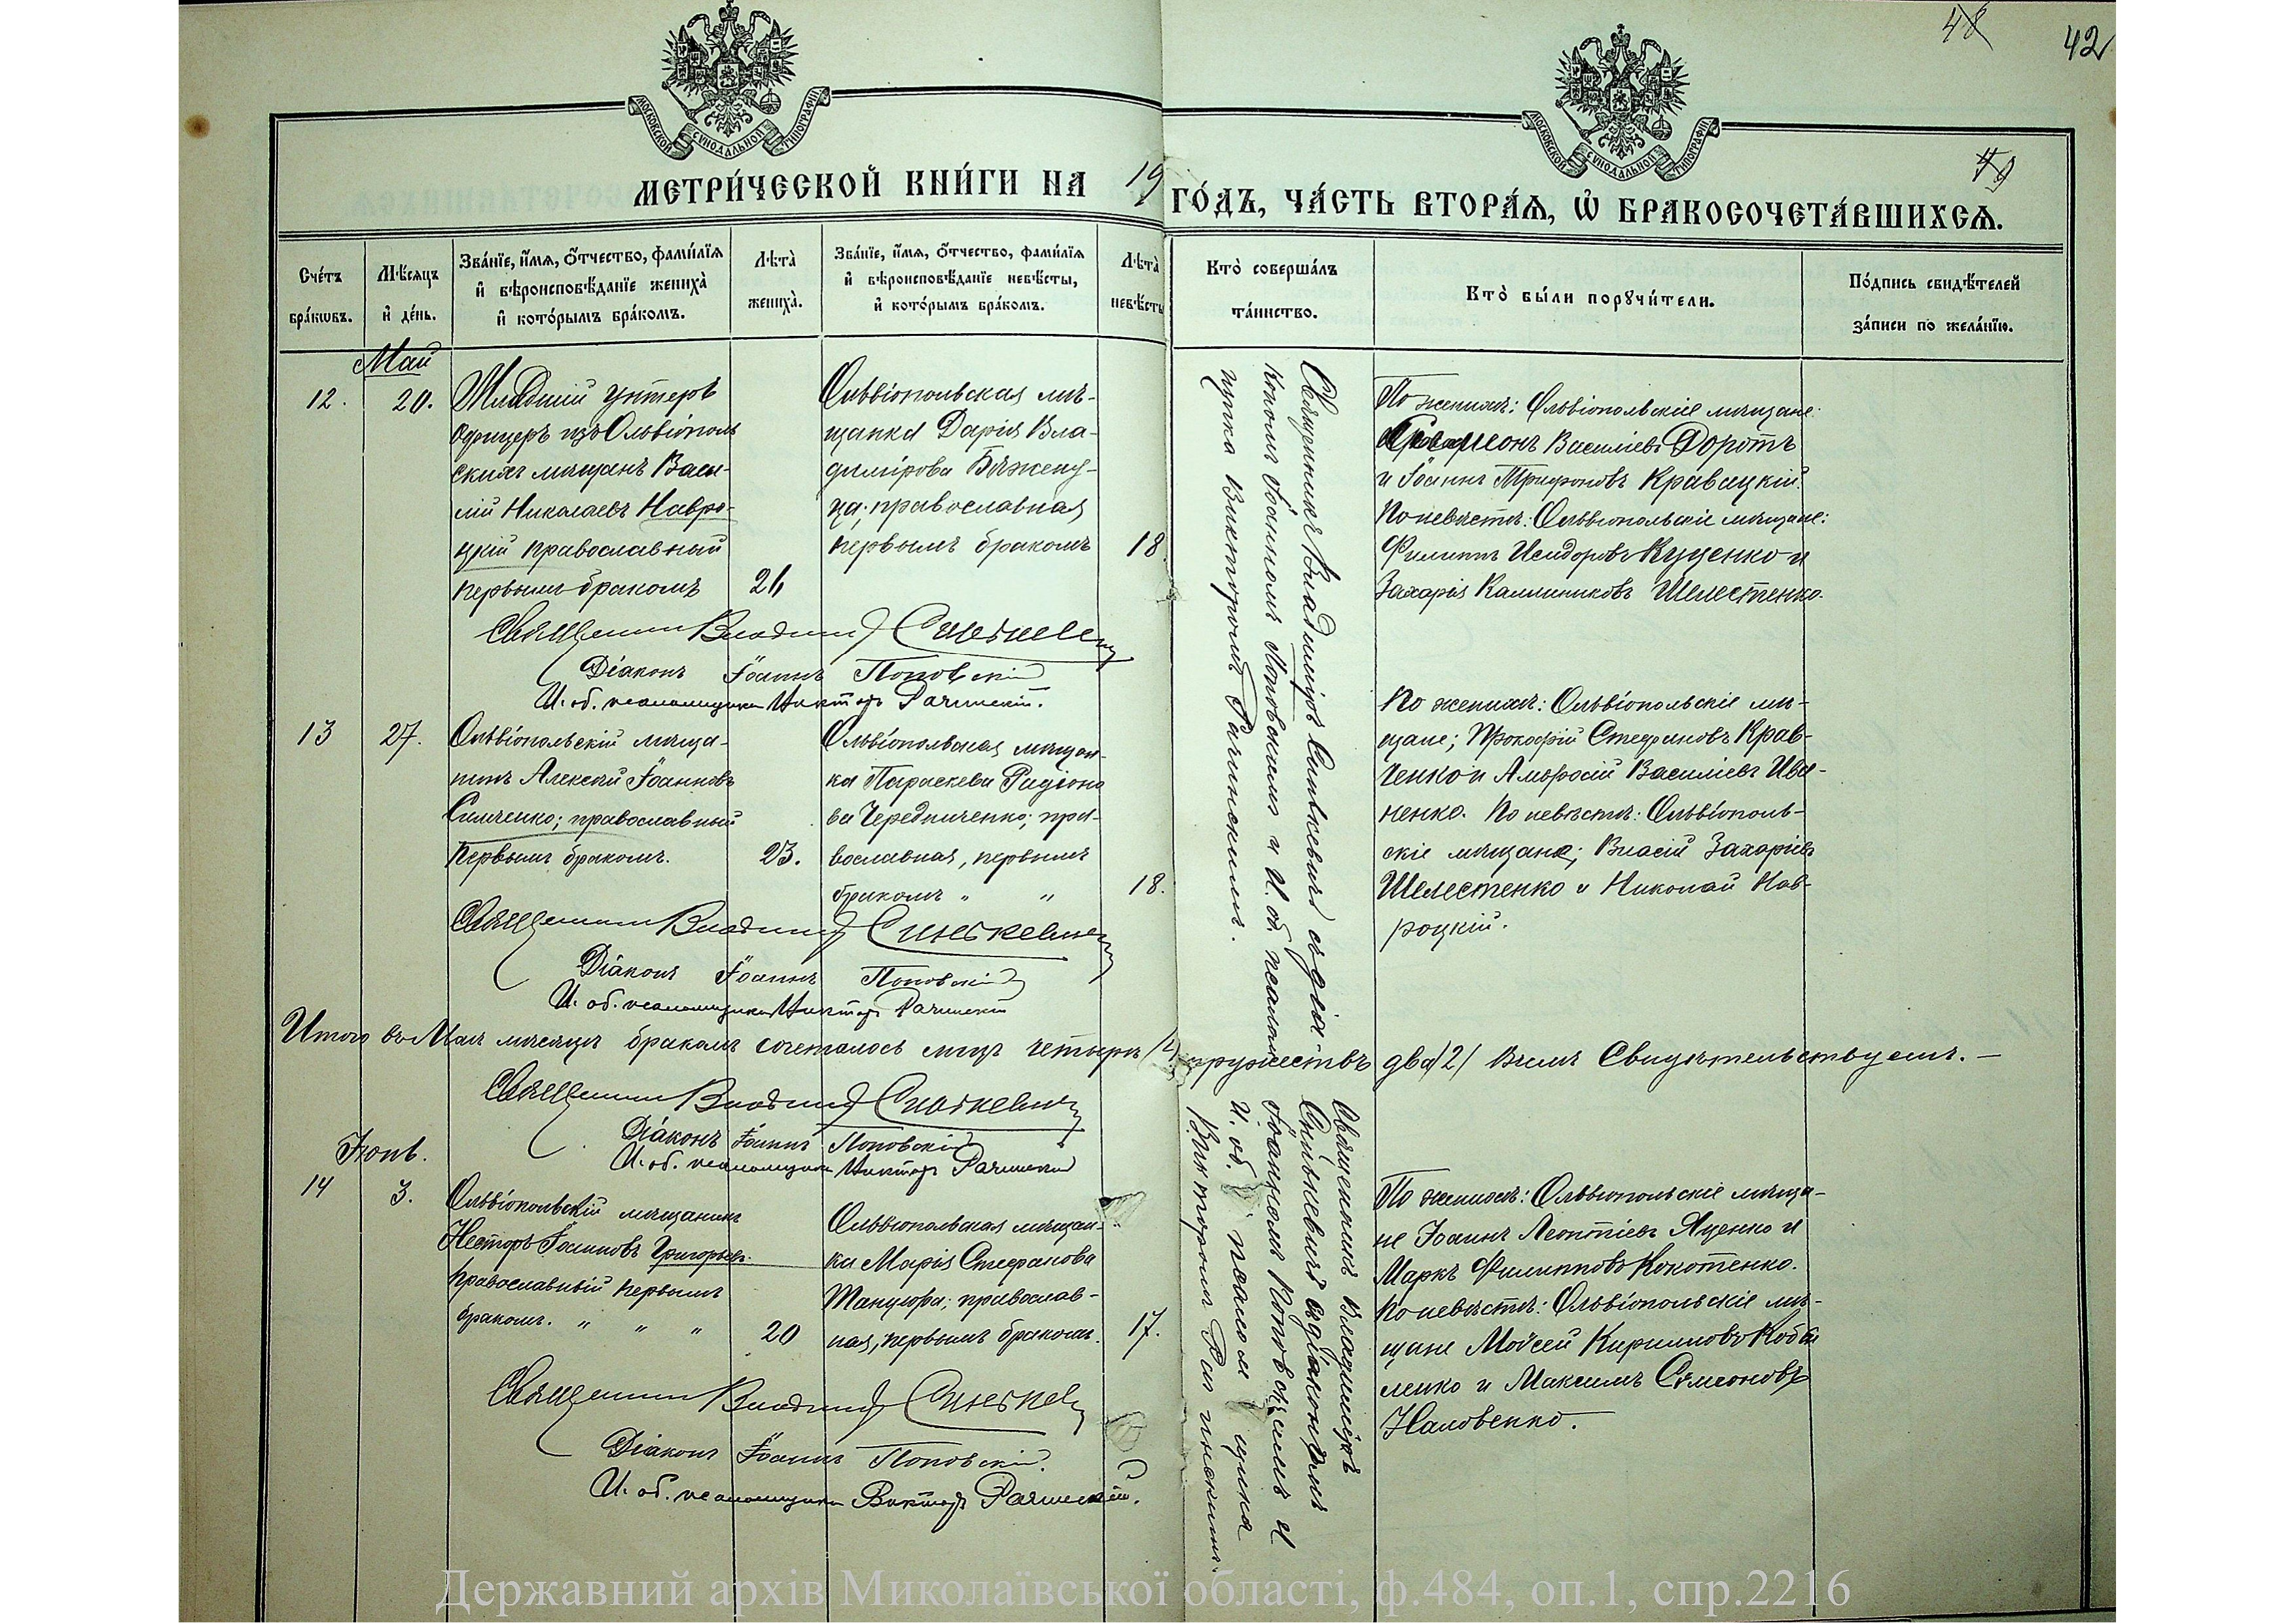 48
42
МОСКОВСКОЙ СѴНОДАЛЬНОЙ ТИПОГРАФІИ
МОСКОВСКОЙ СѴНОДАЛЬНОЙ ТИПОГРАФІИ
МЕТРИ́ЧЕСКОЙ КНИ́ГИ НА 19 ГО́ДЪ, ЧА́СТЬ ВТОРА́Я, Ѡ БРАКОСОЧЕТА́ВШИХСЯ.
Сче́тъ
бра́кѡвъ.
Мѣ́сяцъ
и҆ де́нь.
Зва́нїе, и҆́мя, ѻ҆́тчество, фами́лїя
и҆ вѣроисповѣ́данїе жениха̀
и҆ кото́рымъ бра́комъ.
Лѣта̀
жениха̀.
Зва́нїе, и҆́мя, ѻ҆́тчество, фами́лїя
и҆ вѣроисповѣ́данїе невѣ́сты,
и҆ кото́рымъ бра́комъ.
Лѣта̀
невѣ́сты
Кто̀ соверша́лъ
та́инство.
Кто̀ бы́ли порꙋчи́тели.
По́дпись свидѣ́телей
за́писи по жела́нїю.
Май
12.
20.
Младшій унтеръ
офицеръ изъ Ольвіополь
скихъ мѣщанъ Васи-
лій Николаевъ Навро-
цкій православный
первымъ бракомъ
21
Ольвіопольская мѣ-
щанка Дарія Вла-
димірова
православная
первымъ бракомъ
18.
Священникъ Владиміръ Синькевичъ съ діа
кономъ Іоанномъ Поповскимъ и И. об. псалом
щика Викторомъ Рачинскимъ.
По женихѣ: Ольвіопольскіе мѣщане:
Васильевъ Доротъ
и Іоаннъ Трифоновъ Кравацкій.
По невѣстѣ: Ольвіопольскіе мѣщане:
Филиппъ Исидоровъ Куценко и
Захарія Каллиниковъ Шелестенко.
Священникъ Владиміръ Синькевичъ
Діаконъ Іоаннъ Поповскій
И. об. псаломщика Викторъ Рачинскій.
13
27.
Ольвіопольскій мѣща-
нинъ Алексѣй Іоанновъ
Симченко; православный
первымъ бракомъ.
23.
Ольвіопольская мѣщан-
ка Параскева Радіоно
ва Чередниченко; пра-
вославная, первымъ
бракомъ " "
18.
По женихѣ: Ольвіопольскіе мѣ-
щане; Прокофій Стефановъ Крав-
ченко и Амвросій Васильевъ Ива-
ненко. По невѣстѣ: Ольвіополь-
скіе мѣщане; Власій Захаріевъ
Шелестенко и Николай Нав-
роцкій.
Священникъ Владиміръ Синькевичъ
Діаконъ Іоаннъ Поповскій
И. об. псаломщика Викторъ Рачинскій
Итого въ Маѣ мѣсяцѣ бракомъ сочеталось лицъ четыре (4) супружествъ два (2) Въ чемъ Свидѣтельствуемъ. —
Священникъ Владиміръ Синькевичъ
Діаконъ Іоаннъ Поповскій
И. об. псаломщика Викторъ Рачинскій
Іюнь.
14
3.
Ольвіопольскій мѣщанинъ
Несторъ Іоанновъ Григорьевъ
православный первымъ
бракомъ. " " "
20
Ольвіопольская мѣщан-
ка Марія Стефанова
православ-
ная, первымъ бракомъ.
17.
Священникъ Владиміръ
Синькевичъ съ діакономъ
Іоанномъ Поповскимъ и
И. об. псаломщика
Викторомъ Рачинскимъ.
По женихѣ: Ольвіопольскіе мѣща-
не Іоаннъ Леонтіевъ Яценко и
Маркъ Филипповъ Кокотенко.
По невѣстѣ: Ольвіопольскіе мѣ-
щане Моисей Кирилловъ Кобы
ленко и Максимъ Симеоновъ
Наловенко.
Священникъ Владиміръ Синькевичъ
Діаконъ Іоаннъ Поповскій.
И. об. псаломщика Викторъ Рачинскій.
Державний архів Миколаївської області, ф.484, оп.1, спр.2216